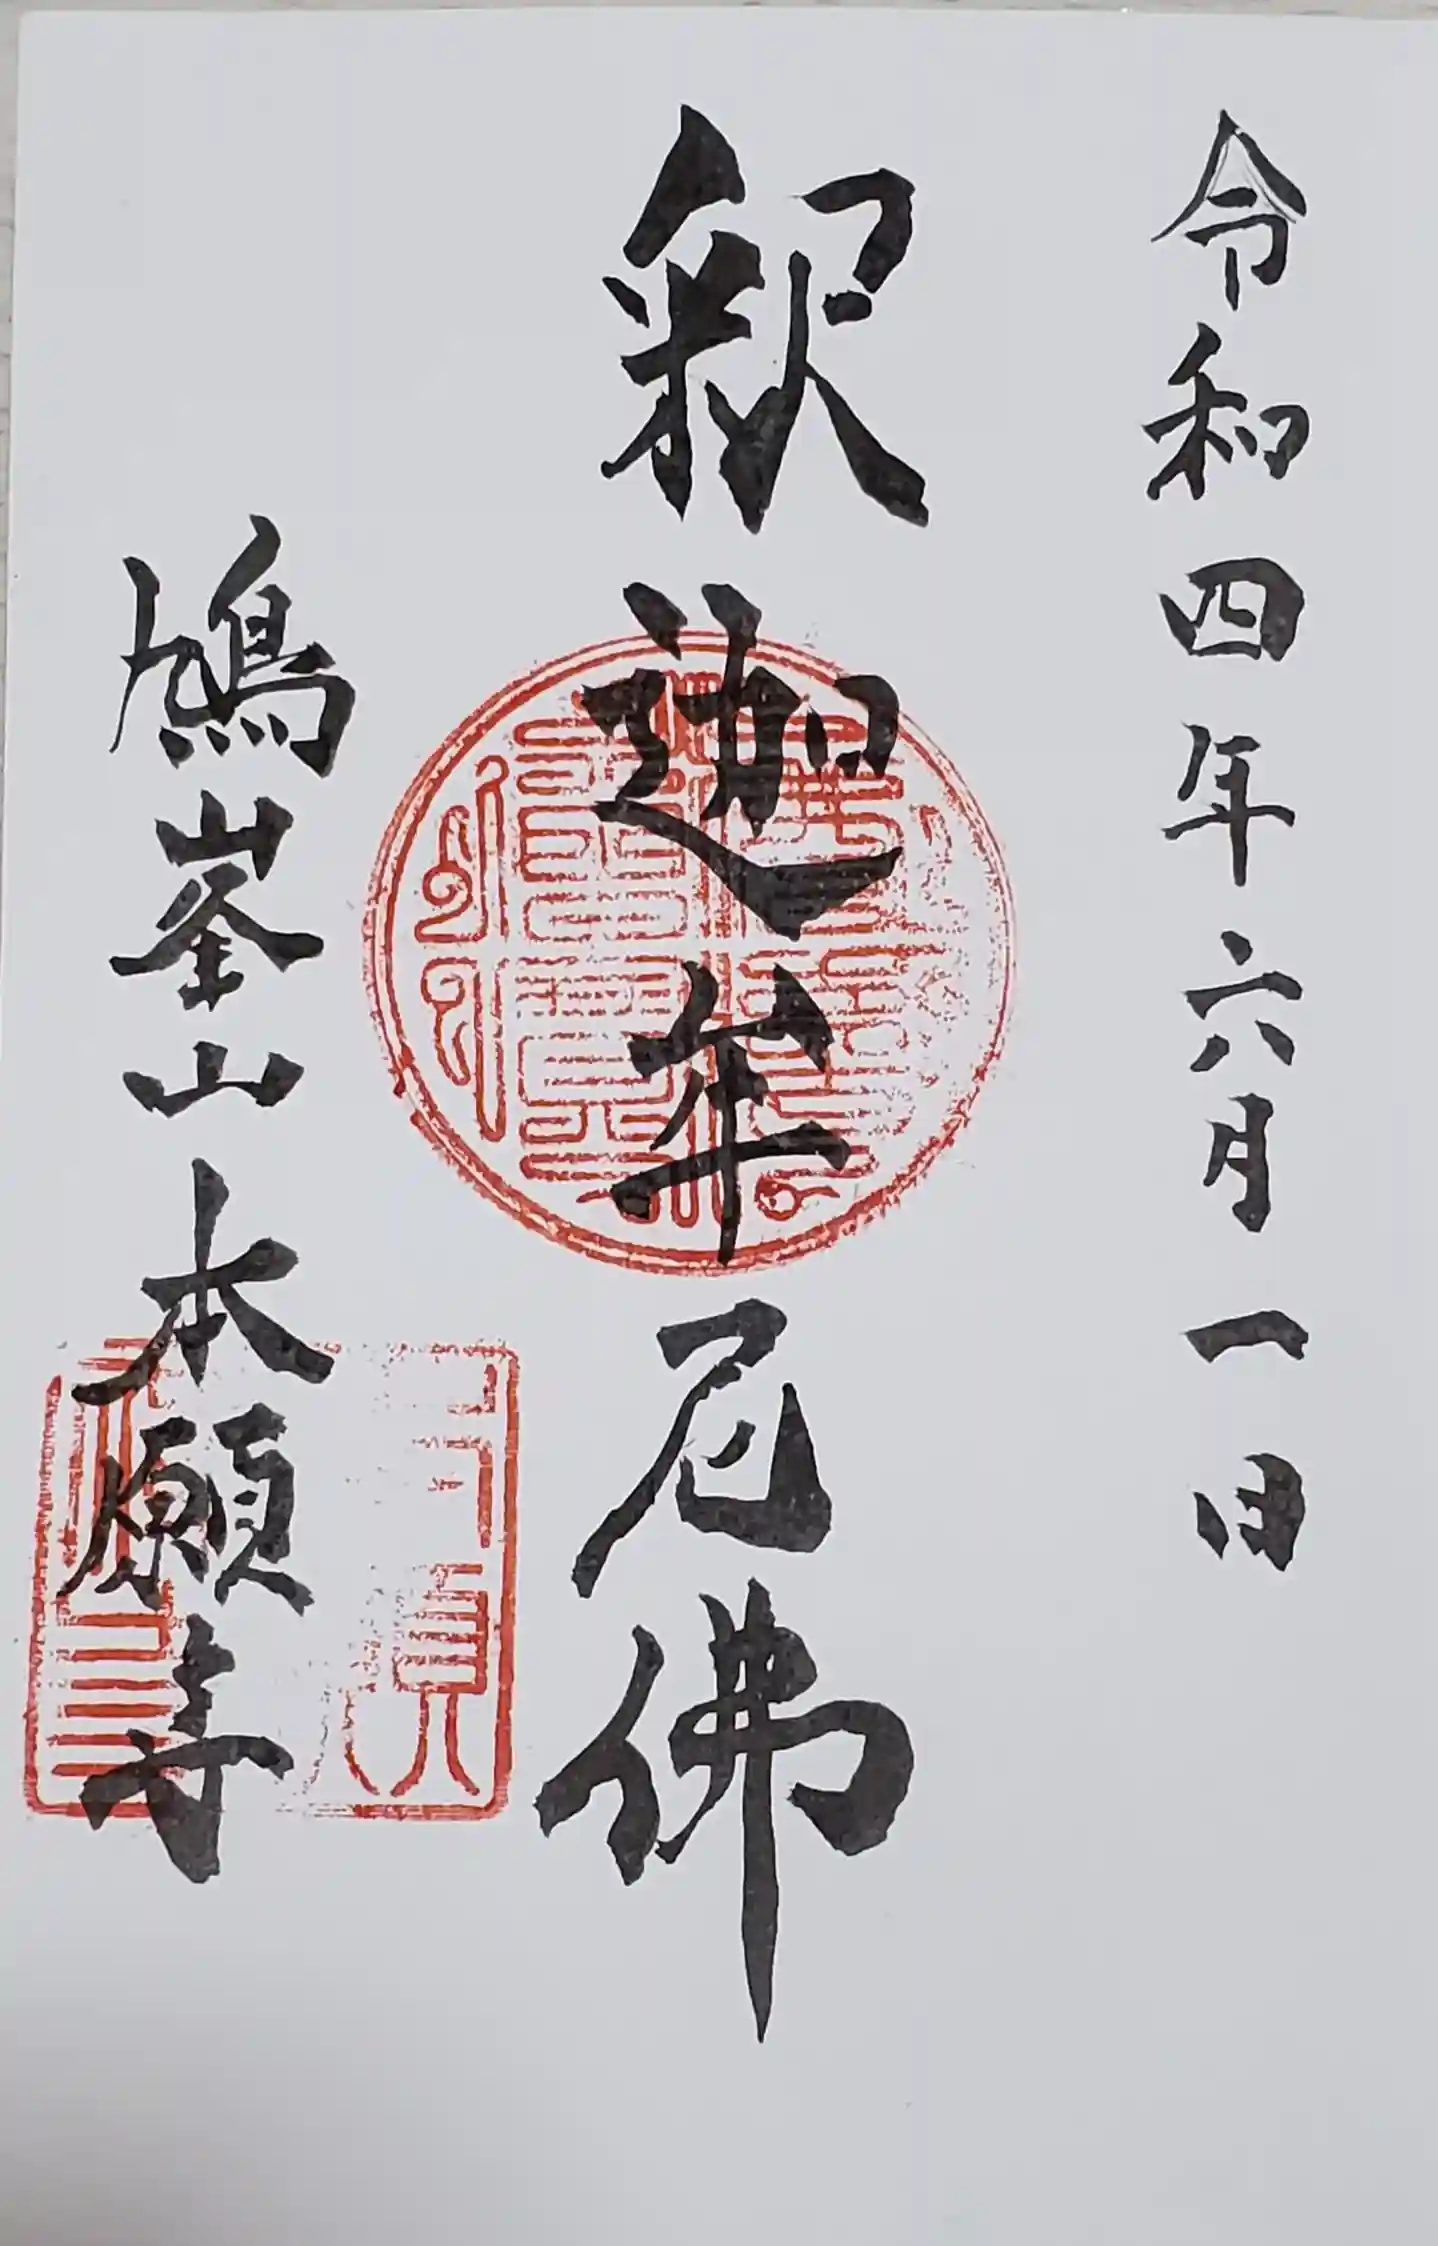 令和四年六月一日
釈迦牟尼佛
鳩峯山本願寺